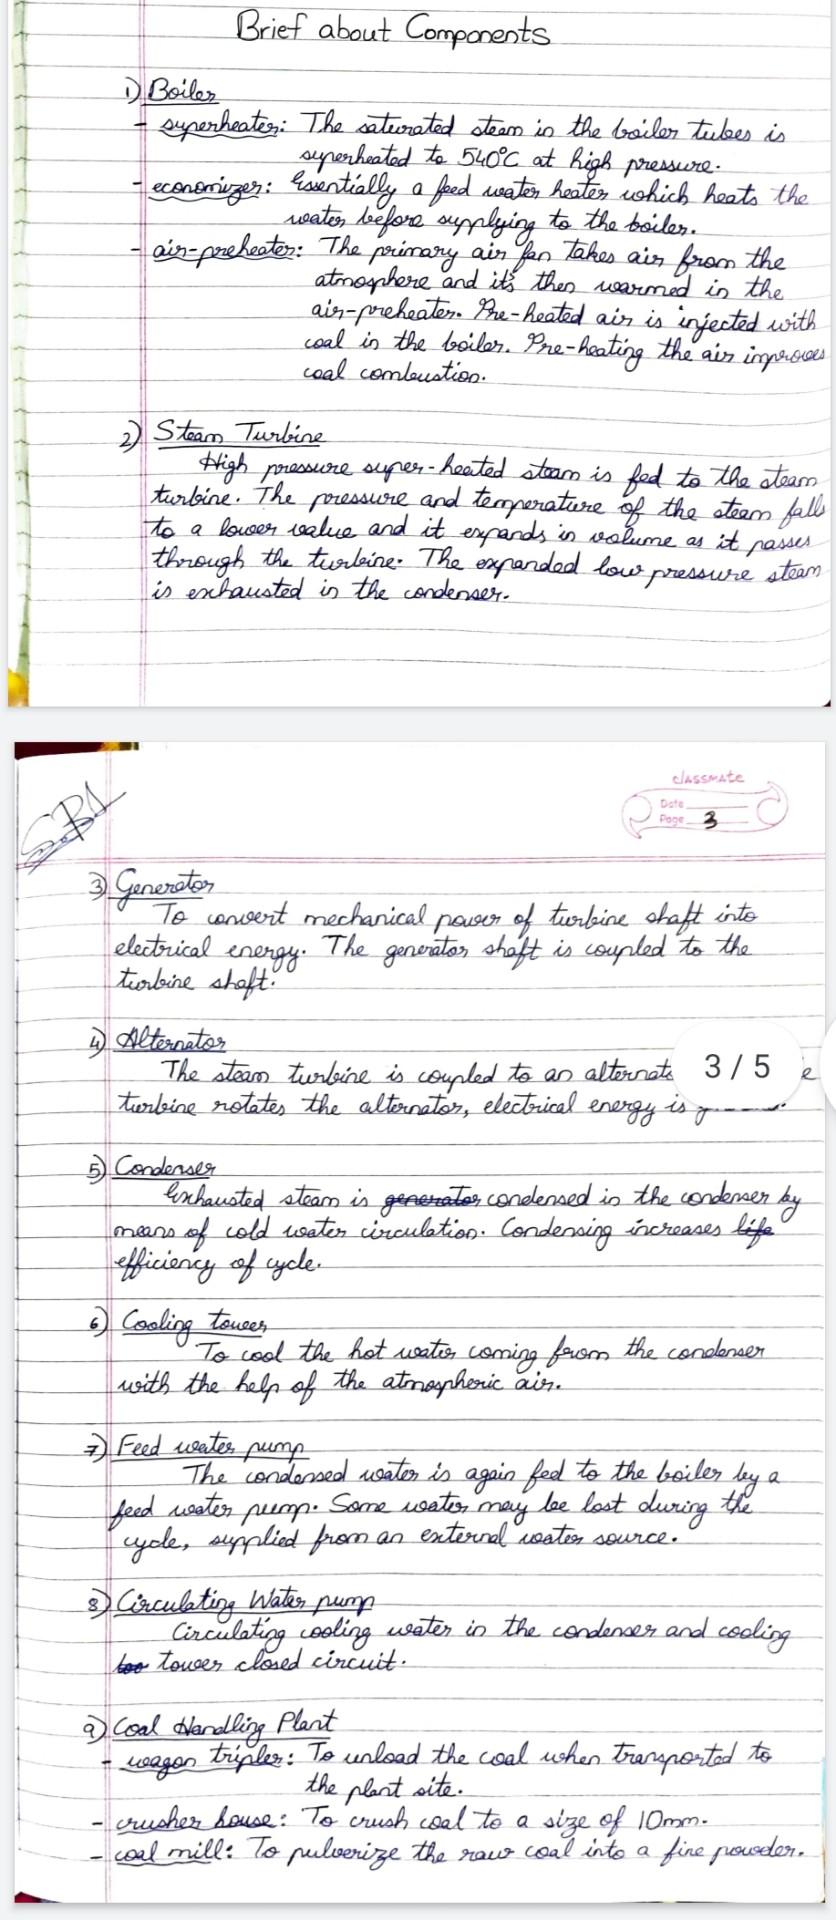 Brief about Components
1) Boiler
- superheater: The saturated steam in the boiler tubes is
superheated to 540°C at high pressure.
- economizer: Essentially a feed water heater which heats the
water before supplying to the boiler.
- air-preheater: The primary air fan takes air from the
atmosphere and it's then warmed in the
air-preheater. Pre-heated air is injected with
coal in the boiler. Pre-heating the air improves
coal combustion.
2) Steam Turbine
High pressure super-heated steam is fed to the steam
turbine. The pressure and temperature of the steam falls
to a lower value and it expands in volume as it passes
through the turbine. The expanded low pressure steam
is exhausted in the condenser.
classmate
Date
Page 3
3) Generator
To convert mechanical power of turbine shaft into
electrical energy. The generator shaft is coupled to the
turbine shaft.
4) Alternator
The steam turbine is coupled to an alternato 3 / 5 e
turbine rotates the alternator, electrical energy is
5) Condenser
Exhausted steam is generator condensed in the condenser by
means of cold water circulation. Condensing increases life
efficiency of cycle.
6) Cooling tower
To cool the hot water coming from the condenser
with the help of the atmospheric air.
7) Feed water pump
The condensed water is again fed to the boiler by a
feed water pump. Some water may be lost during the
cycle, supplied from an external water source.
8) Circulating Water pump
Circulating cooling water in the condenser and cooling
too tower closed circuit.
9) Coal Handling Plant
- wagon tripler: To unload the coal when transported to
the plant site.
- crusher house: To crush coal to a size of 10mm.
- coal mill: To pulverize the raw coal into a fine powder.